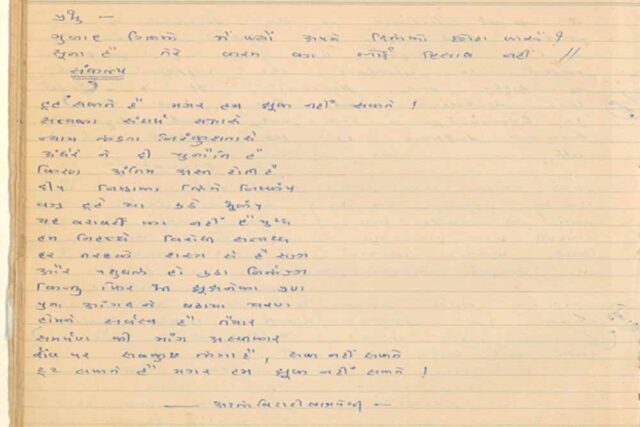 પ્રભુ —
ગુનાહ ગિનકે મેં ક્યોં અપને દિલકો છોટા કરું ?
સુના હૈ તેરે કરમ કા કોઈ હિસાબ નહીં //
સંકલ્પ
ટૂટ સકતે હૈં મગર હમ ઝુક નહીં સકતે !
સત્યકા સંઘર્ષ સત્તાસે
ન્યાય લડતા નિરંકુશતાસે
અંધેરે ને દી ચુનૌતિ હૈ
કિરણ અંતિમ અસ્ત હોતી હૈ
દીપ નિષ્ઠાકા લિયે નિષ્કંપ
વજ્ર ટૂટે યા ઉઠે ભૂકંપ
યહ બરાબરી કા નહીં હૈ યુધ્ધ
હમ નિહત્થે વિરોધી સન્નધ્ધ
હર તરહકે શસ્ત્ર સે હૈ સજ્જ
ઔર પશુબલ હો ઉઠા નિર્લજ્જ
કિન્તુ ફિર ભી ઝૂઝનેકા પ્રણ
પુનઃ અંગદ ને બઢાયા ચરણ
હોમને સર્વસ્વ હૈ તૈયાર
સમર્પણ કી માંગ અસ્વીકાર
દાંવ પર સબકુછ લગા હૈ, રુક નહીં સકતે
ટૂટ સકતે હૈં મગર હમ ઝુક નહીં સકતે !
— અટલ બિહારી વાજપેયી —